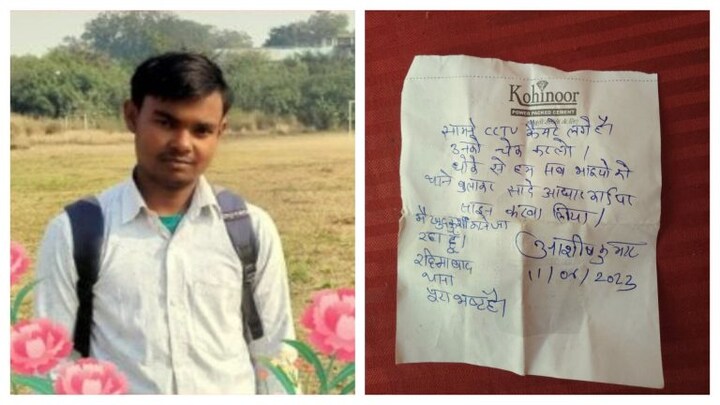 Kohinoor
POWER PACKED CEMENT
सामने CCTV कैमरे लगे है।
उनको चेक करलो।
धोके से हम सब भाइयो को
थाने बुलाकर सादे आधार कार्ड पर
साइन करवा लिया।
मै खुदकुशी करने जा
रहा हूं।
रहिमाबाद
थाना
पूरा भ्रष्ट है।
आशीष कुमार
2023